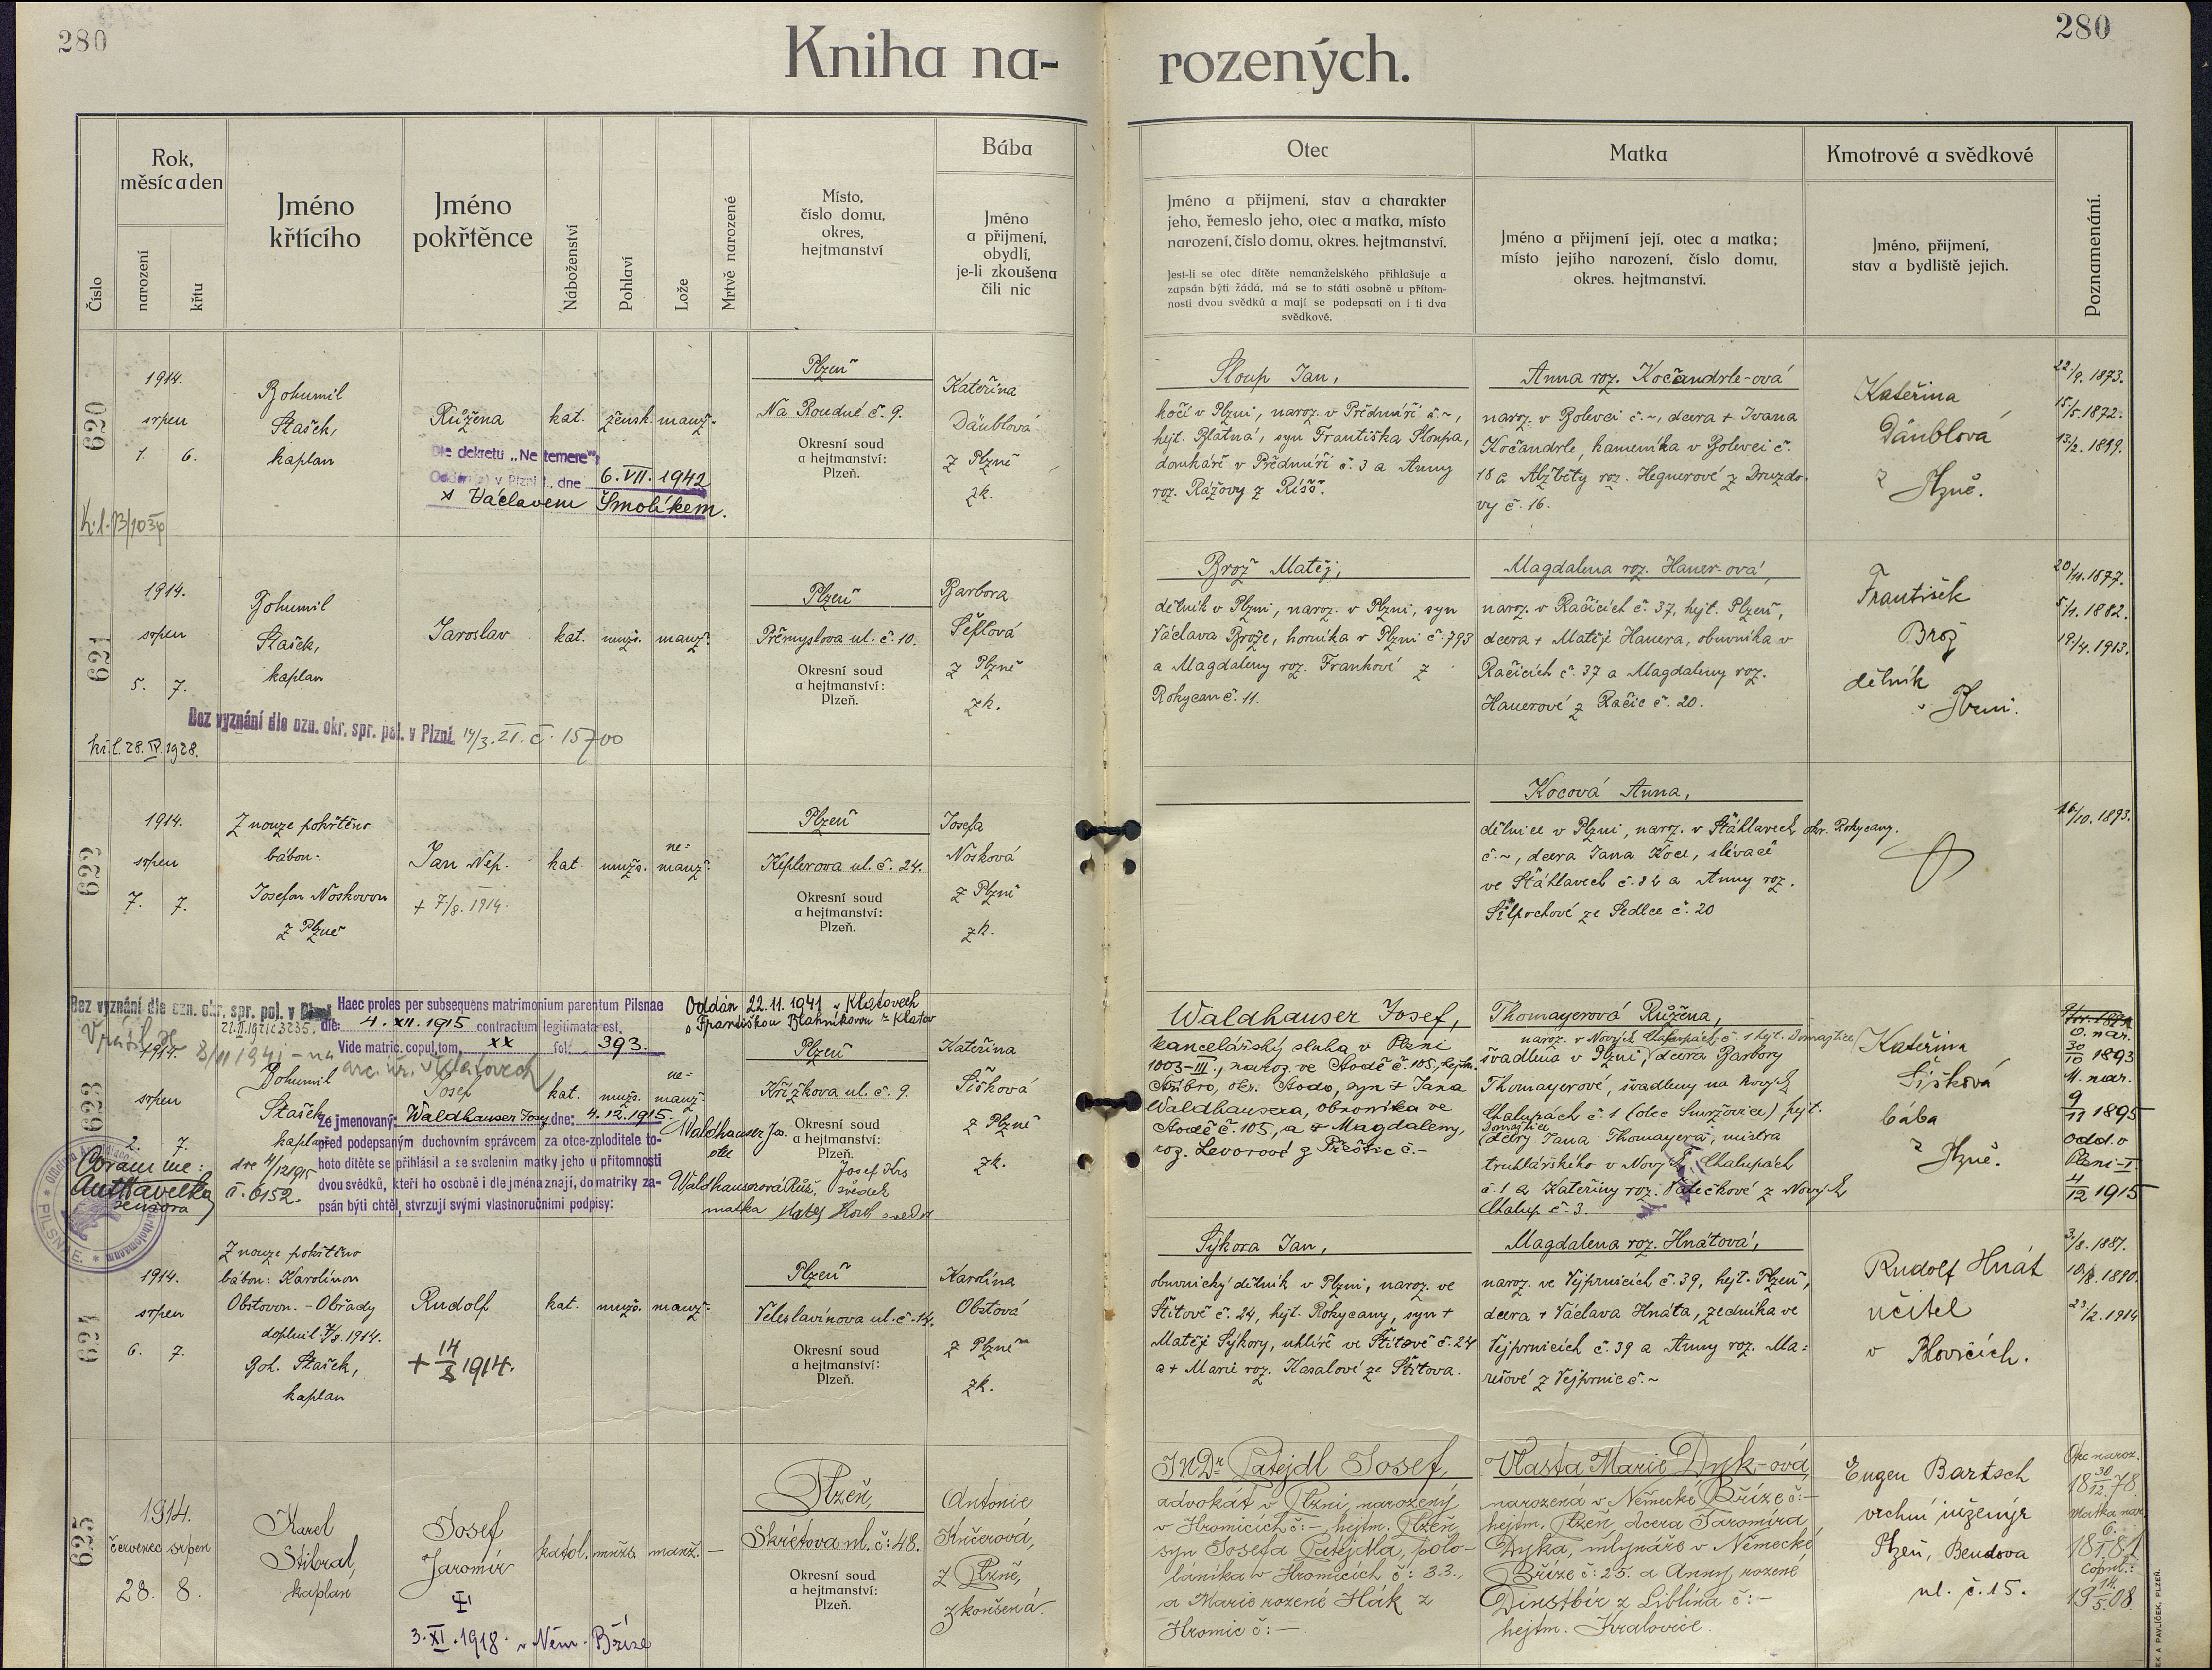 280
280
Kniha na-
rozených.
Číslo
Rok, měsíc a den
narození
křtu
Jméno křtícího
Jméno pokřtěnce
Náboženství
Pohlaví
Lože
Mrtvě narozené
Místo,
číslo domu,
okres,
hejtmanství
Bába
Jméno
a přijmení,
obydlí,
je-li zkoušena
čili nic
Otec
Jméno a přijmení, stav a charakter
jeho, řemeslo jeho, otec a matka, místo
narození, číslo domu, okres. hejtmanství.
Jest-li se otec dítěte nemanželského přihlašuje a
zapsán býti žádá, má se to státi osobně u přítom-
nosti dvou svědků a mají se podepsati on i ti dva
svědkové.
Matka
Jméno a přijmení její, otec a matka;
místo jejího narození, číslo domu,
okres. hejtmanství.
Kmotrové a svědkové
Jméno, přijmení,
stav a bydliště jejich.
Poznamenání.
620
1914.
srpen
1. 6.
Bohumil
Stašek,
kaplan
Růžena
kat. žensk. manž.
Dle dekretu „Ne temere":
Oddán(a) v Plzni I., dne 6. VII. 1942
s Václavem Šmolíkem.
Plzeň
Na Roudné č. 9.
Okresní soud
a hejtmanství:
Plzeň.
Kateřina
Däublová
z Plzně
zk.
Sloup Jan,
kočí v Plzni, naroz. v Předmíři č. ~,
hejt. Blatná, syn Františka Sloupa,
domkáře v Předmíři č. 3 a Anny
roz.
Anna roz. Kočandrle-ová
naroz. v Bolevci č. ~, dcera + Ivana
Kočandrle, kameníka v Bolevci č.
18 a Alžběty roz. Hegnerové z Druzdo-
vy č. 16.
Kateřina
Däublová
z Plzně.
22/9. 1873.
15/5. 1872.
13/2. 1899.
621
1914.
srpen
5. 7.
Bohumil
Stašek,
kaplan
Jaroslav
kat. mužs. manž.
Bez vyznání dle ozn. okr. spr. pol. v Plzni 14/3. 21. č. 15700
kř. l. 28. IV. 1928.
Plzeň
Přemyslova ul. č. 10.
Okresní soud
a hejtmanství:
Plzeň.
Barbora
Šeflová
z Plzně
zk.
Brož Matěj,
dělník v Plzni, naroz. v Plzni, syn
Václava Brože, horníka v Plzni č. 793
a Magdaleny roz. Frankové z
Rokycan č. 11.
Magdalena roz. Hauer-ová,
naroz. v Račicích č. 37, hejt. Plzeň,
dcera + Matěje Hauera, obuvníka v
Račicích č. 37 a Magdaleny roz.
Hauerové z Račic č. 20.
František
Brož
dělník
v Plzni.
20/11. 1877.
5/1. 1882.
19/4. 1913.
622
1914.
srpen
7. 7.
Z nouze pokřtěno
bábou:
Josefou Noskovou
z Plzně
Jan Nep.
+ 7/8. 1914.
kat. mužs. ne-
manž.
Plzeň
Keplerova ul. č. 24.
Okresní soud
a hejtmanství:
Plzeň.
Josefa
Nosková
z Plzně
zk.
Kocová Anna,
dělnice v Plzni, naroz. v Štáhlavech okr. Rokycany.
č. ~, dcera Jana Koce, slévače
ve Štáhlavech č. 82 a Anny roz.
ze Sedlce č. 20
16/10. 1893.
623
Bez vyznání dle ozn. okr. spr. pol. v Plzni
21. II. 1921 č. 3235.
Haec proles per subsequens matrimonium parentum Pilsnae
die: 4. XII. 1915 contractum legitimata est.
Vide matric. copul. tom. XX fol. 393.
Oddán 22.11.1941 v Klatovech
s Františkou Blahníkovou z Klatov
1914.
srpen
2. 7.
Bohumil
Stašek
kaplan
Josef
kat. mužs. ne-
manž.
Ze jmenovaný: Waldhauser Josef dne: 4.12.1915.
před podepsaným duchovním správcem za otce-zploditele to-
hoto dítěte se přihlásil a se svolením matky jeho u přítomnosti
dvou svědků, kteří ho osobně i dle jména znají, do matriky za-
psán býti chtěl, stvrzují svými vlastnoručními podpisy:
dne 4/12 1915
č. 6152.
Coram me:
Waldhauser Jos.
otec
Waldhauserová Růž.
matka
Josef Krs
svědek
Plzeň
Křižkova ul. č. 9.
Okresní soud
a hejtmanství:
Plzeň.
Kateřina
Šišková
z Plzně
zk.
Waldhauser Josef,
kancelářský sluha v Plzni
1003-III., naroz. ve Stodě č. 105, hejtm.
Stříbro, okr. Stodo, syn + Jana
Waldhausera, obuvníka ve
Stodě č. 105., a + Magdaleny,
roz. Levorové z Přeštic č. –
Thomayerová Růžena,
naroz. v Nových Chalupách č. 1 hejt. Domažlice
švadlena v Plzni, dcera Barbory
Thomayerové, švadleny na Nových
Chalupách č. 1 (obec Smržovice) hejt.
Domažlice
(dcery Jana Thomayera, mistra
truhlářského v Nových Chalupách
č. 1 a Kateřiny roz. Vatečkové z Nových
Chalup č. 3.
Kateřina
Šišková
bába
z Plzně.
O. nar.
30/10 1893
M. nar.
9/11 1895
Odd. v
Plzni-I.
4/12 1915
624
1914.
srpen
6. 7.
Z nouze pokřtěno
bábou: Karolínou
Obstovou. - Obřady
doplnil 7/8. 1914.
Boh. Stašek,
kaplan
Rudolf
+ 14/8 1914.
kat. mužs. manž.
Plzeň
Veleslavínova ul. č. 14.
Okresní soud
a hejtmanství:
Plzeň.
Karolína
Obstová
z Plzně
zk.
Sýkora Jan,
obuvnický dělník v Plzni, naroz. ve
Štítově č. 24, hejt. Rokycany, syn +
Matěje Sýkory, uhlíře ve Štítově č. 24
a + Marie roz. Kasalové ze Štítova.
Magdalena roz. Hnátová,
naroz. ve Vejprnicích č. 39, hejt. Plzeň,
dcera + Václava Hnáta, zedníka ve
Vejprnicích č. 39 a Anny roz. Ma-
rešové z Vejprnic č. ~
Rudolf Hnát
učitel
v Blovicích.
3/8. 1887.
10/8. 1890.
23/2. 1914
625
1914.
červenec srpen
28. 8.
Karel
Stibral,
kaplan
Josef
Jaromír
3. XI. 1918. v Něm. Bříze
katol. mužs. manž. –
Plzeň,
Skrétova ul. č: 48.
Okresní soud
a hejtmanství:
Plzeň.
Antonie
Kučerová,
z Plzně,
zkoušená.
JUDr Patejdl Josef,
advokát v Plzni, narozený
v Hromicích č: – hejtm. Plzeň
syn Josefa Patejdla, polo-
láníka v Hromicích č: 33.,
a Marie rozené Hák z
Hromic č: –.
Vlasta Marie Dyk-ová,
narozená v Německé Bříze č: –
hejtm. Plzeň, dcera Jaromíra
Dyka, mlynáře v Německé
Bříze č: 25. a Anny rozené
Dinstbír z Liblína č: –
hejtm. Kralovice.
Eugen Bartsch
vrchní inženýr
Plzeň, Bendova
ul. č. 15.
Otec naroz.
18 30/12. 78.
Matka nar.
18 6./1. 81
copul.:
19 14./5. 08.